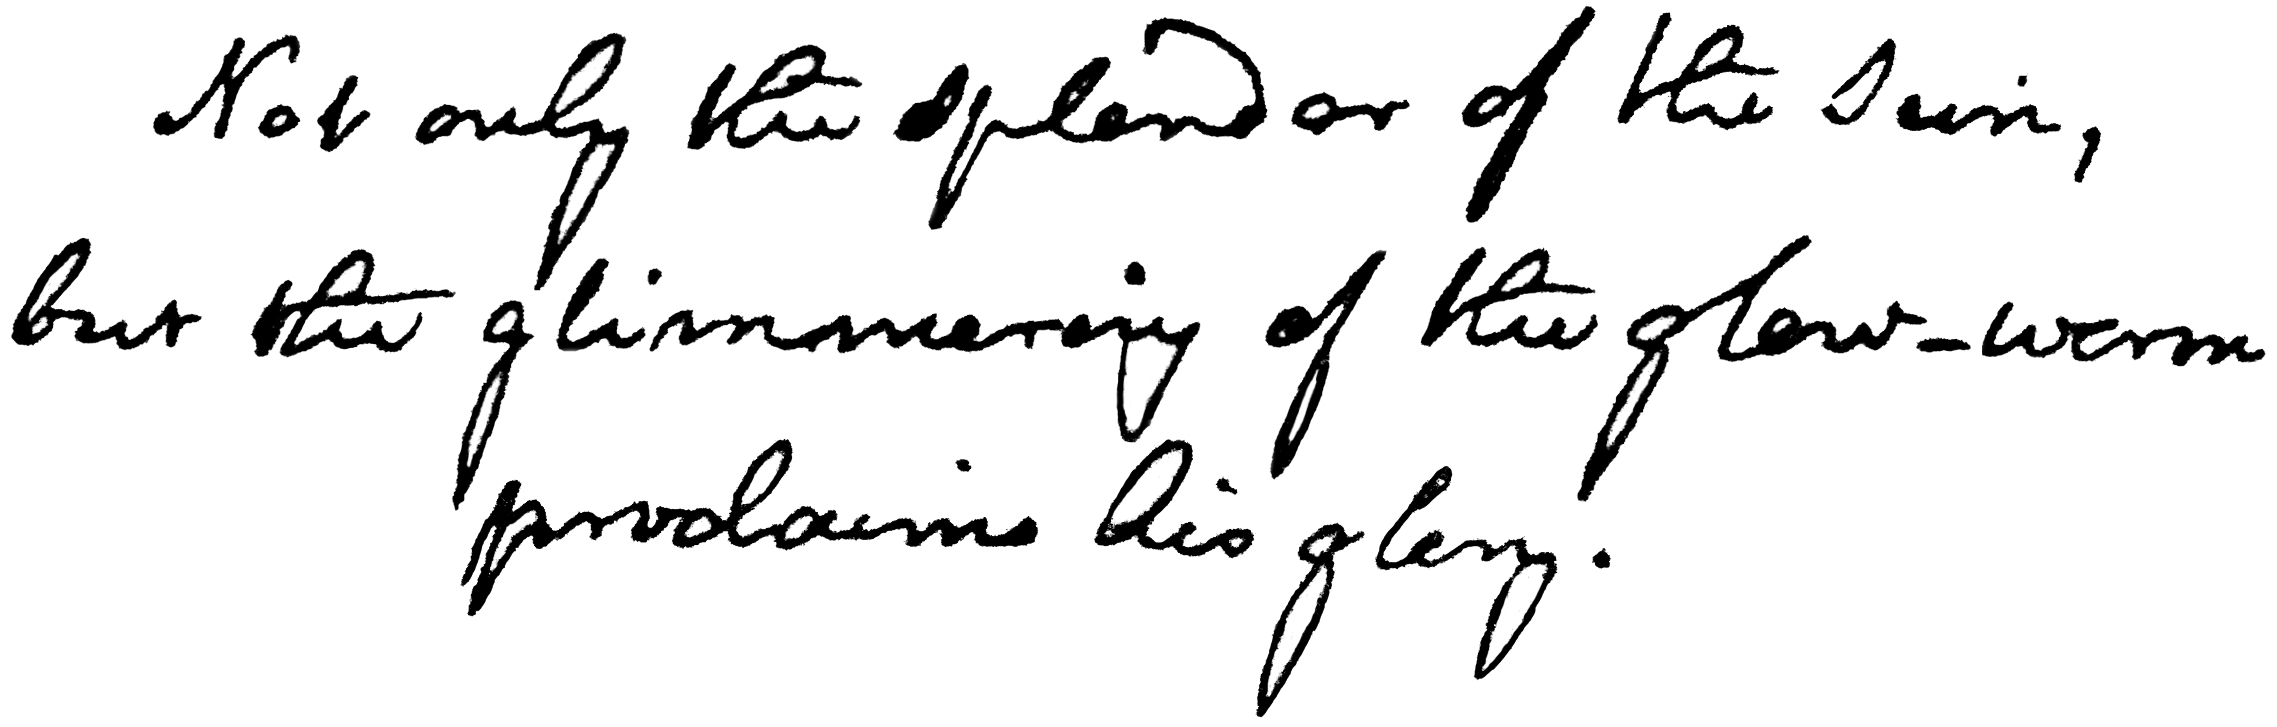 Not only the splendor of the Sun,
but the glimmering of the glow-worm
proclaims his glory.